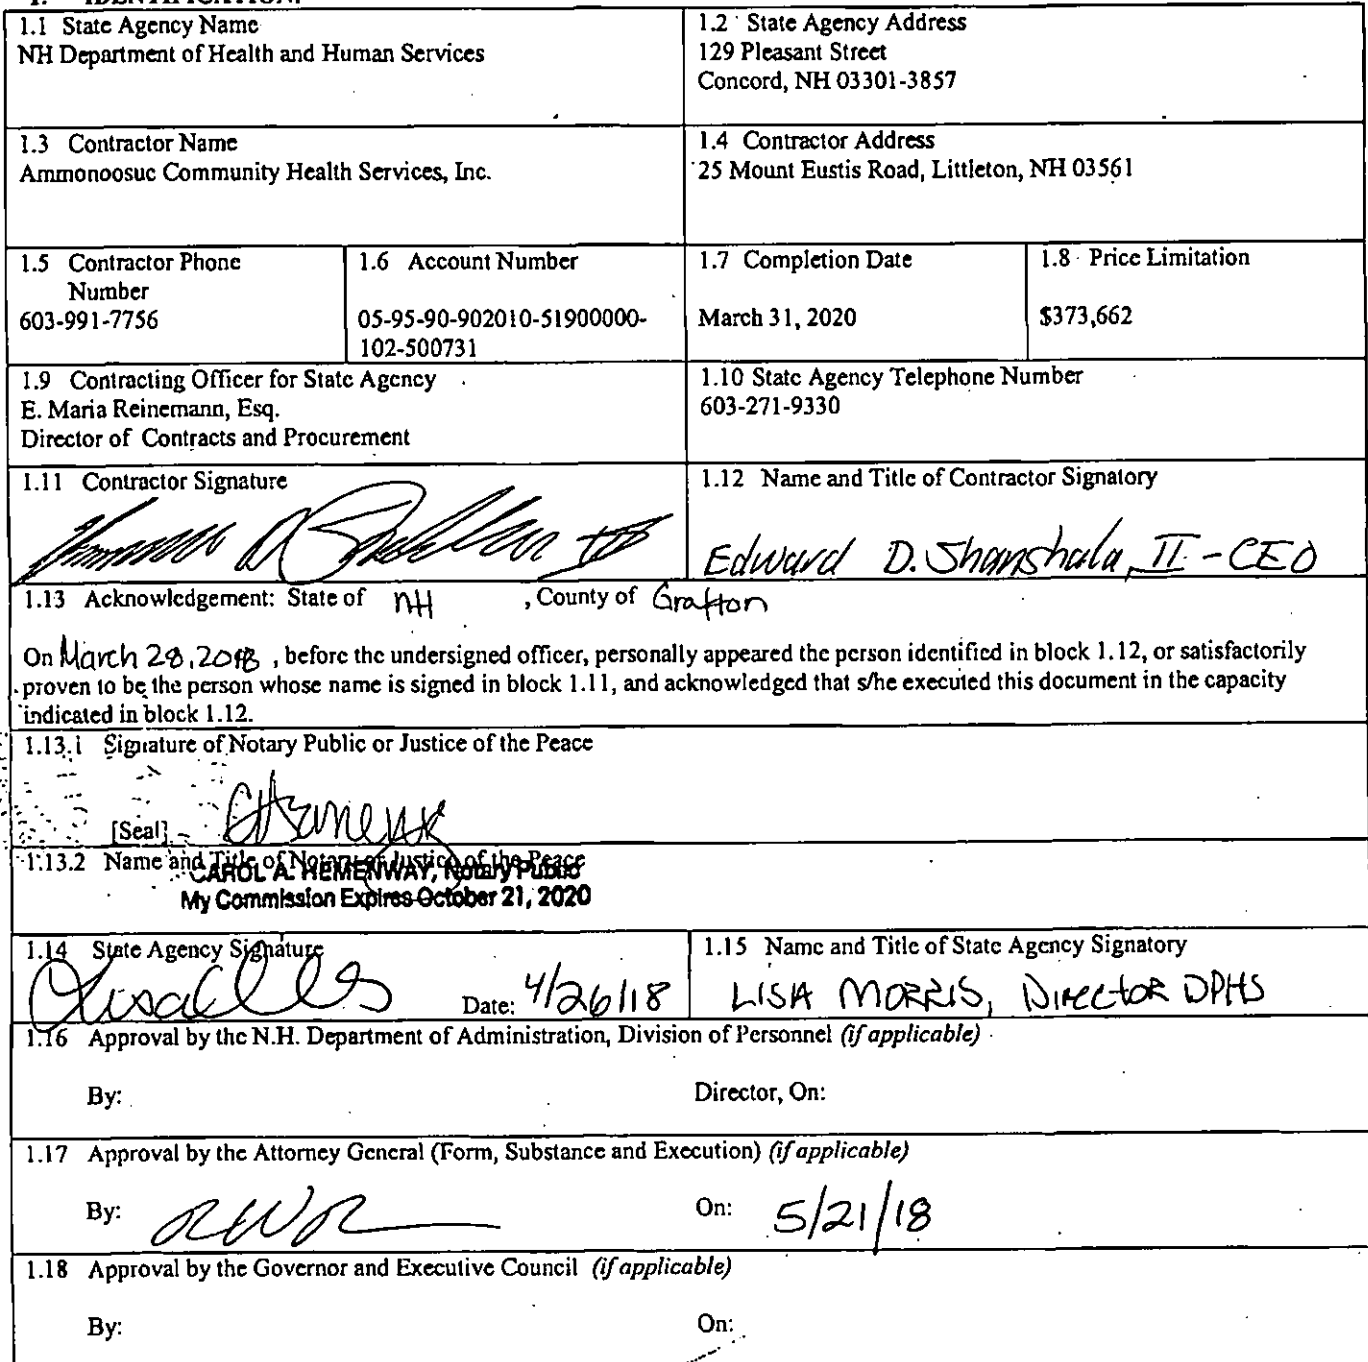 1. IDENTIFICATION.
1.1 State Agency Name
NH Department of Health and Human Services
1.2 State Agency Address
129 Pleasant Street
Concord, NH 03301-3857
1.3 Contractor Name
Ammonoosuc Community Health Services, Inc.
1.4 Contractor Address
25 Mount Eustis Road, Littleton, NH 03561
1.5 Contractor Phone
Number
603-991-7756
1.6 Account Number
05-95-90-902010-51900000-
102-500731
1.7 Completion Date
March 31, 2020
1.8 Price Limitation
$373,662
1.9 Contracting Officer for State Agency
E. Maria Reinemann, Esq.
Director of Contracts and Procurement
1.10 State Agency Telephone Number
603-271-9330
1.11 Contractor Signature
1.12 Name and Title of Contractor Signatory
Edward D. Shanshala, II - CEO
1.13 Acknowledgement: State of NH , County of Grafton
On March 28, 2018 , before the undersigned officer, personally appeared the person identified in block 1.12, or satisfactorily
proven to be the person whose name is signed in block 1.11, and acknowledged that s/he executed this document in the capacity
indicated in block 1.12.
1.13.1 Signature of Notary Public or Justice of the Peace
[Seal]
1.13.2 Name and Title of Notary or Justice of the Peace
CAROL A. HEMENWAY, Notary Public
My Commission Expires October 21, 2020
1.14 State Agency Signature
Date: 4/26/18
1.15 Name and Title of State Agency Signatory
LISA MORRIS, DIRECTOR DPHS
1.16 Approval by the N.H. Department of Administration, Division of Personnel (if applicable)
By: Director, On:
1.17 Approval by the Attorney General (Form, Substance and Execution) (if applicable)
By: On: 5/21/18
1.18 Approval by the Governor and Executive Council (if applicable)
By: On: